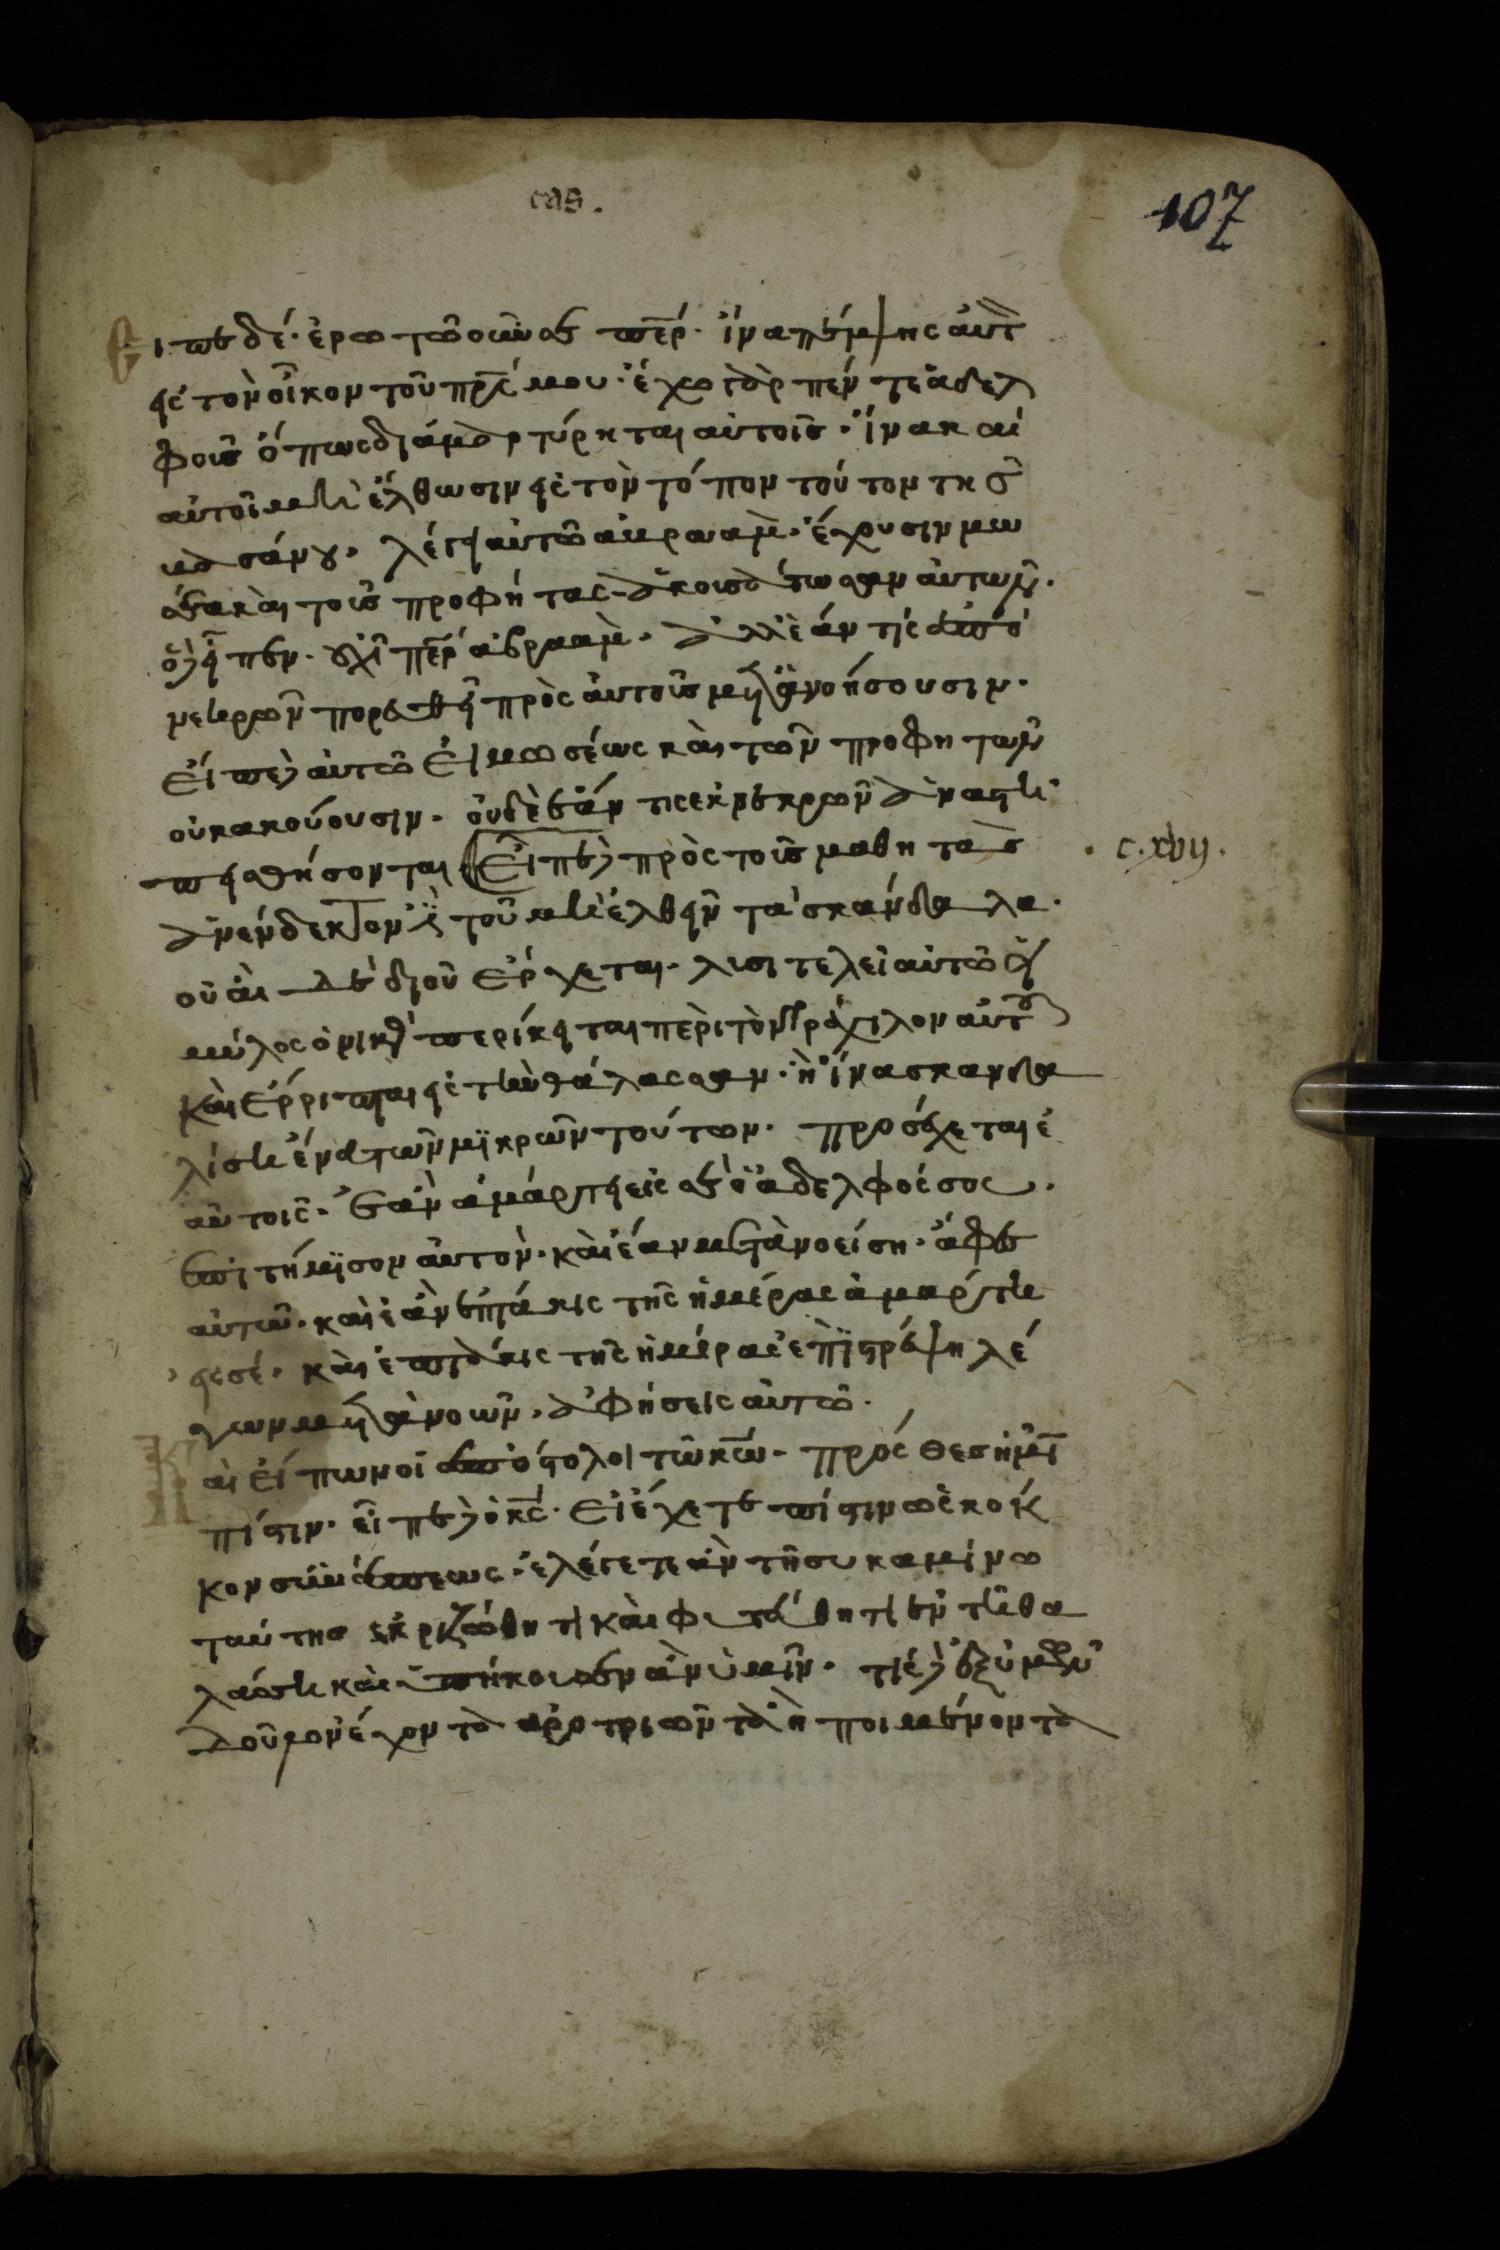 cas.
107
Ειπε δέ· ἐρωτῶ οὖν σὲ περ· ἵνα πέμψης αὐτ
εἰς τὸν οἶκον τοῦ πρς μου· ἔχω γὰρ πέντε ἀδελ
φοὺς ὅπως διάμαρτύρηται αὐτοῖς· ἵνα καὶ
αὐτοῖ μὴ ἔλθωσιν εἰς τὸν τόπον τούτον τῆς
βασάνου· λέγει αὐτῶ ἀβρααμ· ἔχουσιν μω
σέα καὶ τοὺς προφήτας ἀκουσάτωσαν ἀυτων·
ὁ δὲ εἶπεν· οὐχὶ περ ἀβρααμ· ἀλλ ἐάν τις ἀπὸ
νεκρῶν πορευθῆ πρὸς ἀυτοὺς μετανοήσουσιν·
Εἶπεν ἀυτῶ Εἰ μωσέως καὶ τῶν προφητῶν
οὐκ ακούουσιν· οὐδὲ ἐάν τις εκ νεκρῶν ἀναστῆ
πεισθήσονται Εἶπεν πρὸς τοὺς μαθητὰς
c. xvij.
ἀνένδεκτον ἐστι τοῦ μὴ ἐλθεῖν τὰ σκάνδαλα·
οὐαὶ δὲ διοῦ ἔρχεται· λυσιτελεὶ αὐτῶ εἰ
μύλος ὀνικὸς περίκειται περὶ τὸν τράχιλον αὐτοῦ
Καὶ Ἔρριπται εἰς τὴν θάλασσαν· ἢ ἵνα σκανδα
λίση ἕνα τῶν μϊκρῶν τούτων· προσέχεται ἑ
αὐτοις· Ἐὰν ἁμάρτη εἰς σὲ ὁ ἀδελφοὸς σου·
ἐπιτήμϊσον ἀυτὸν· καὶ ἐὰν μετὰνοείση· ἄφε
αὐτῶ· καὶ ἐὰν ἑπτάκις τῆς ἡμέρας ἁμάρτη
εἰς σέ· καὶ ἑπτάκις τῆς ἡμέρας ἐπϊστρέψη λέ
γων μετὰνοῶν· ἀφήσεις αὐτῶ·
Καὶ εἶπων οἱ ἀπόστολοι τῶ κω· πρόσθες ἡμῖ
πίστιν· εἶπεν ὁ κς· Εἰ ἔχετε πίστιν ὡς κόκ
κον σινάπεως· ἐλέγετε ἂν τῆ συκαμίνω
ταύτη εκριζώθητι καὶ φυτεύθητι ἐν τῆ θα
λάσση καὶ ὑπήκουσεν ἂν ὑμῖν· τίς δὲ ἐξ ὑμῶν
δοῦλον ἔχοντα ἀροτριῶντα ἢ ποιμένοντα